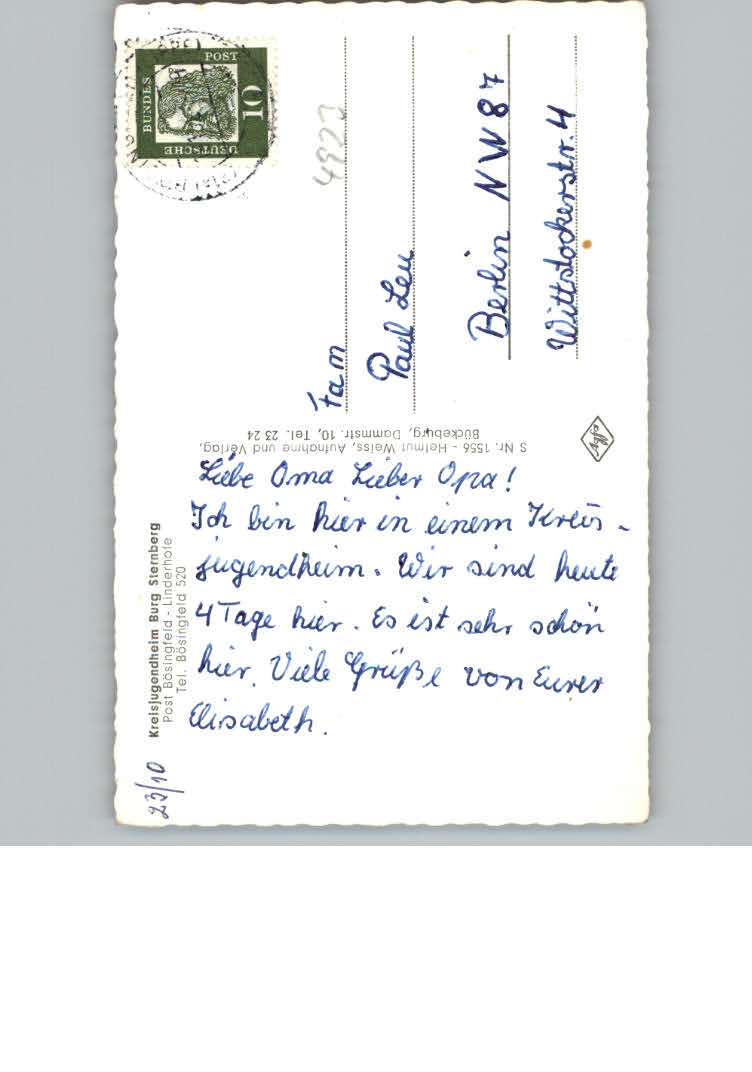 Kreisjugendheim Burg Sternberg
Post Bösingfeld - Linderhofe
Tel. Bösingfeld 520
23/10
Liebe Oma Lieber Opa!
Ich bin hier in einem Kreis-
jugendheim. Wir sind heute
4 Tage hier. Es ist sehr schön
hier. Viele Grüße von Eurer
Elisabeth.
S Nr. 1556 - Helmut Weiss, Aufnahme und Verlag,
Bückeburg, Dammstr. 10, Tel. 23 24
Agfa
DEUTSCHE
BUNDES
POST
10
4923
Fam
Paul Leu
Berlin NW 87
Wittstockerstr. 4